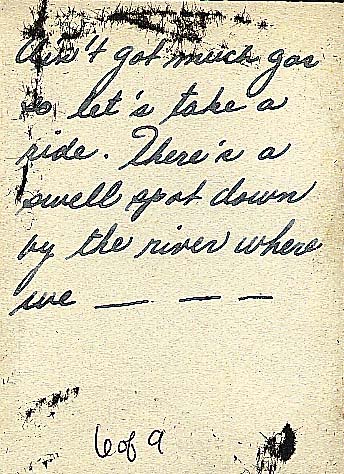 Ain't got much gas
so let's take a
ride. There's a
swell spot down
by the river where
we — — —
6 of 9